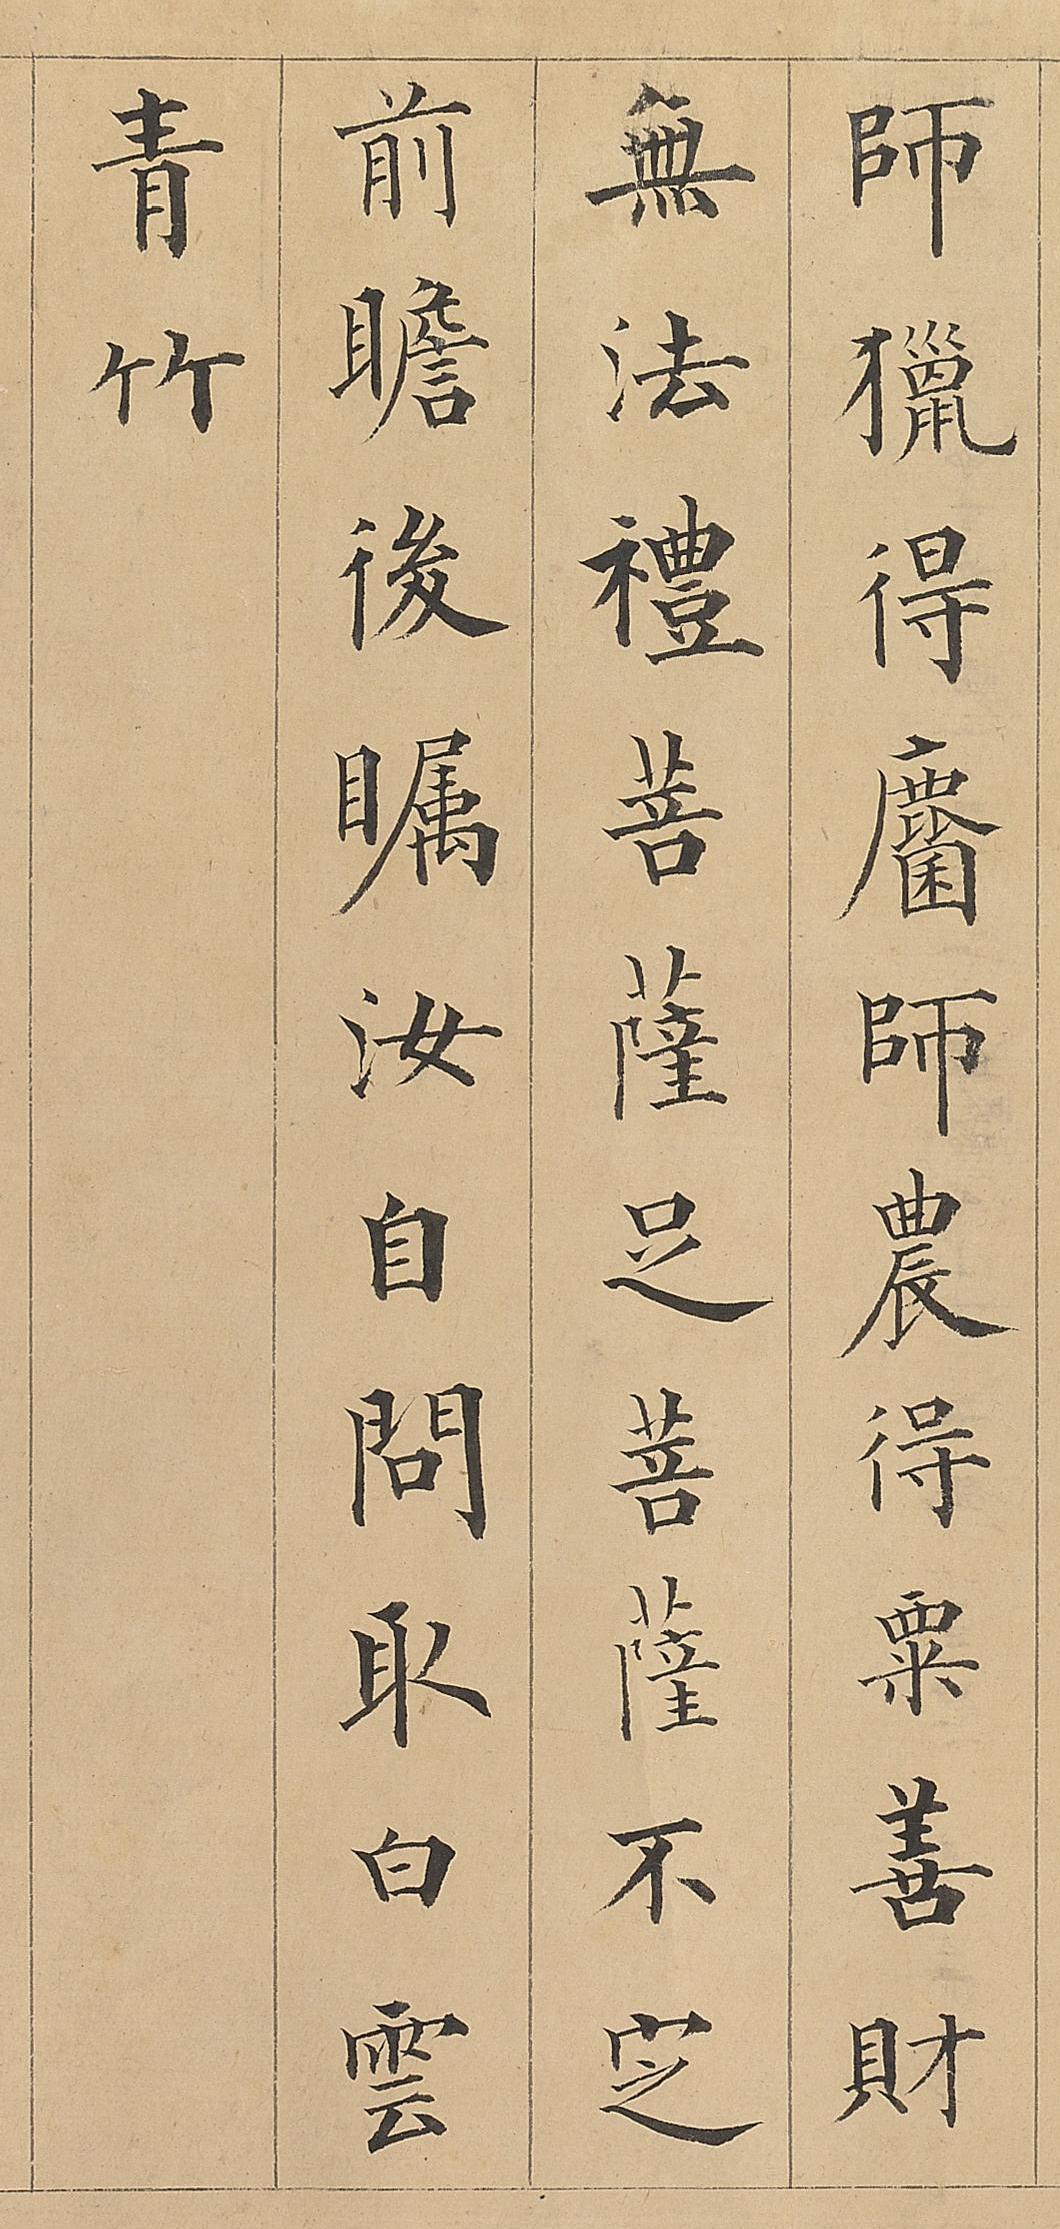 師獵得麕師農得粟善財
無法禮菩薩足菩薩不㝎
前瞻後瞩汝自問取白雲
青竹